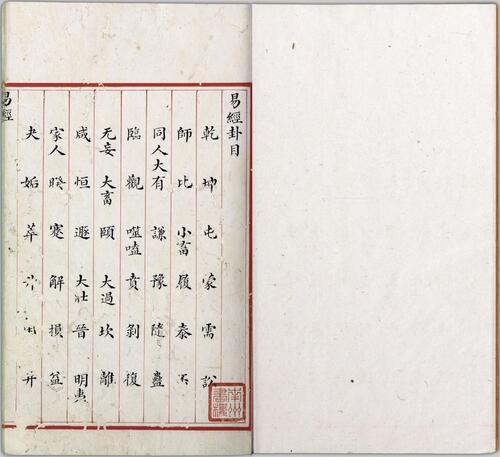 易經卦目
乾 坤 屯 蒙 需 訟
師 比 小畜 履 泰 否
同人 大有 謙 豫 隨 蠱
臨 觀 噬嗑 賁 剝 復
无妄 大畜 頤 大過 坎 離
咸 恒 遯 大壯 晉 明夷
家人 睽 蹇 解 損 益
夬 姤 萃 升 困 井
易經